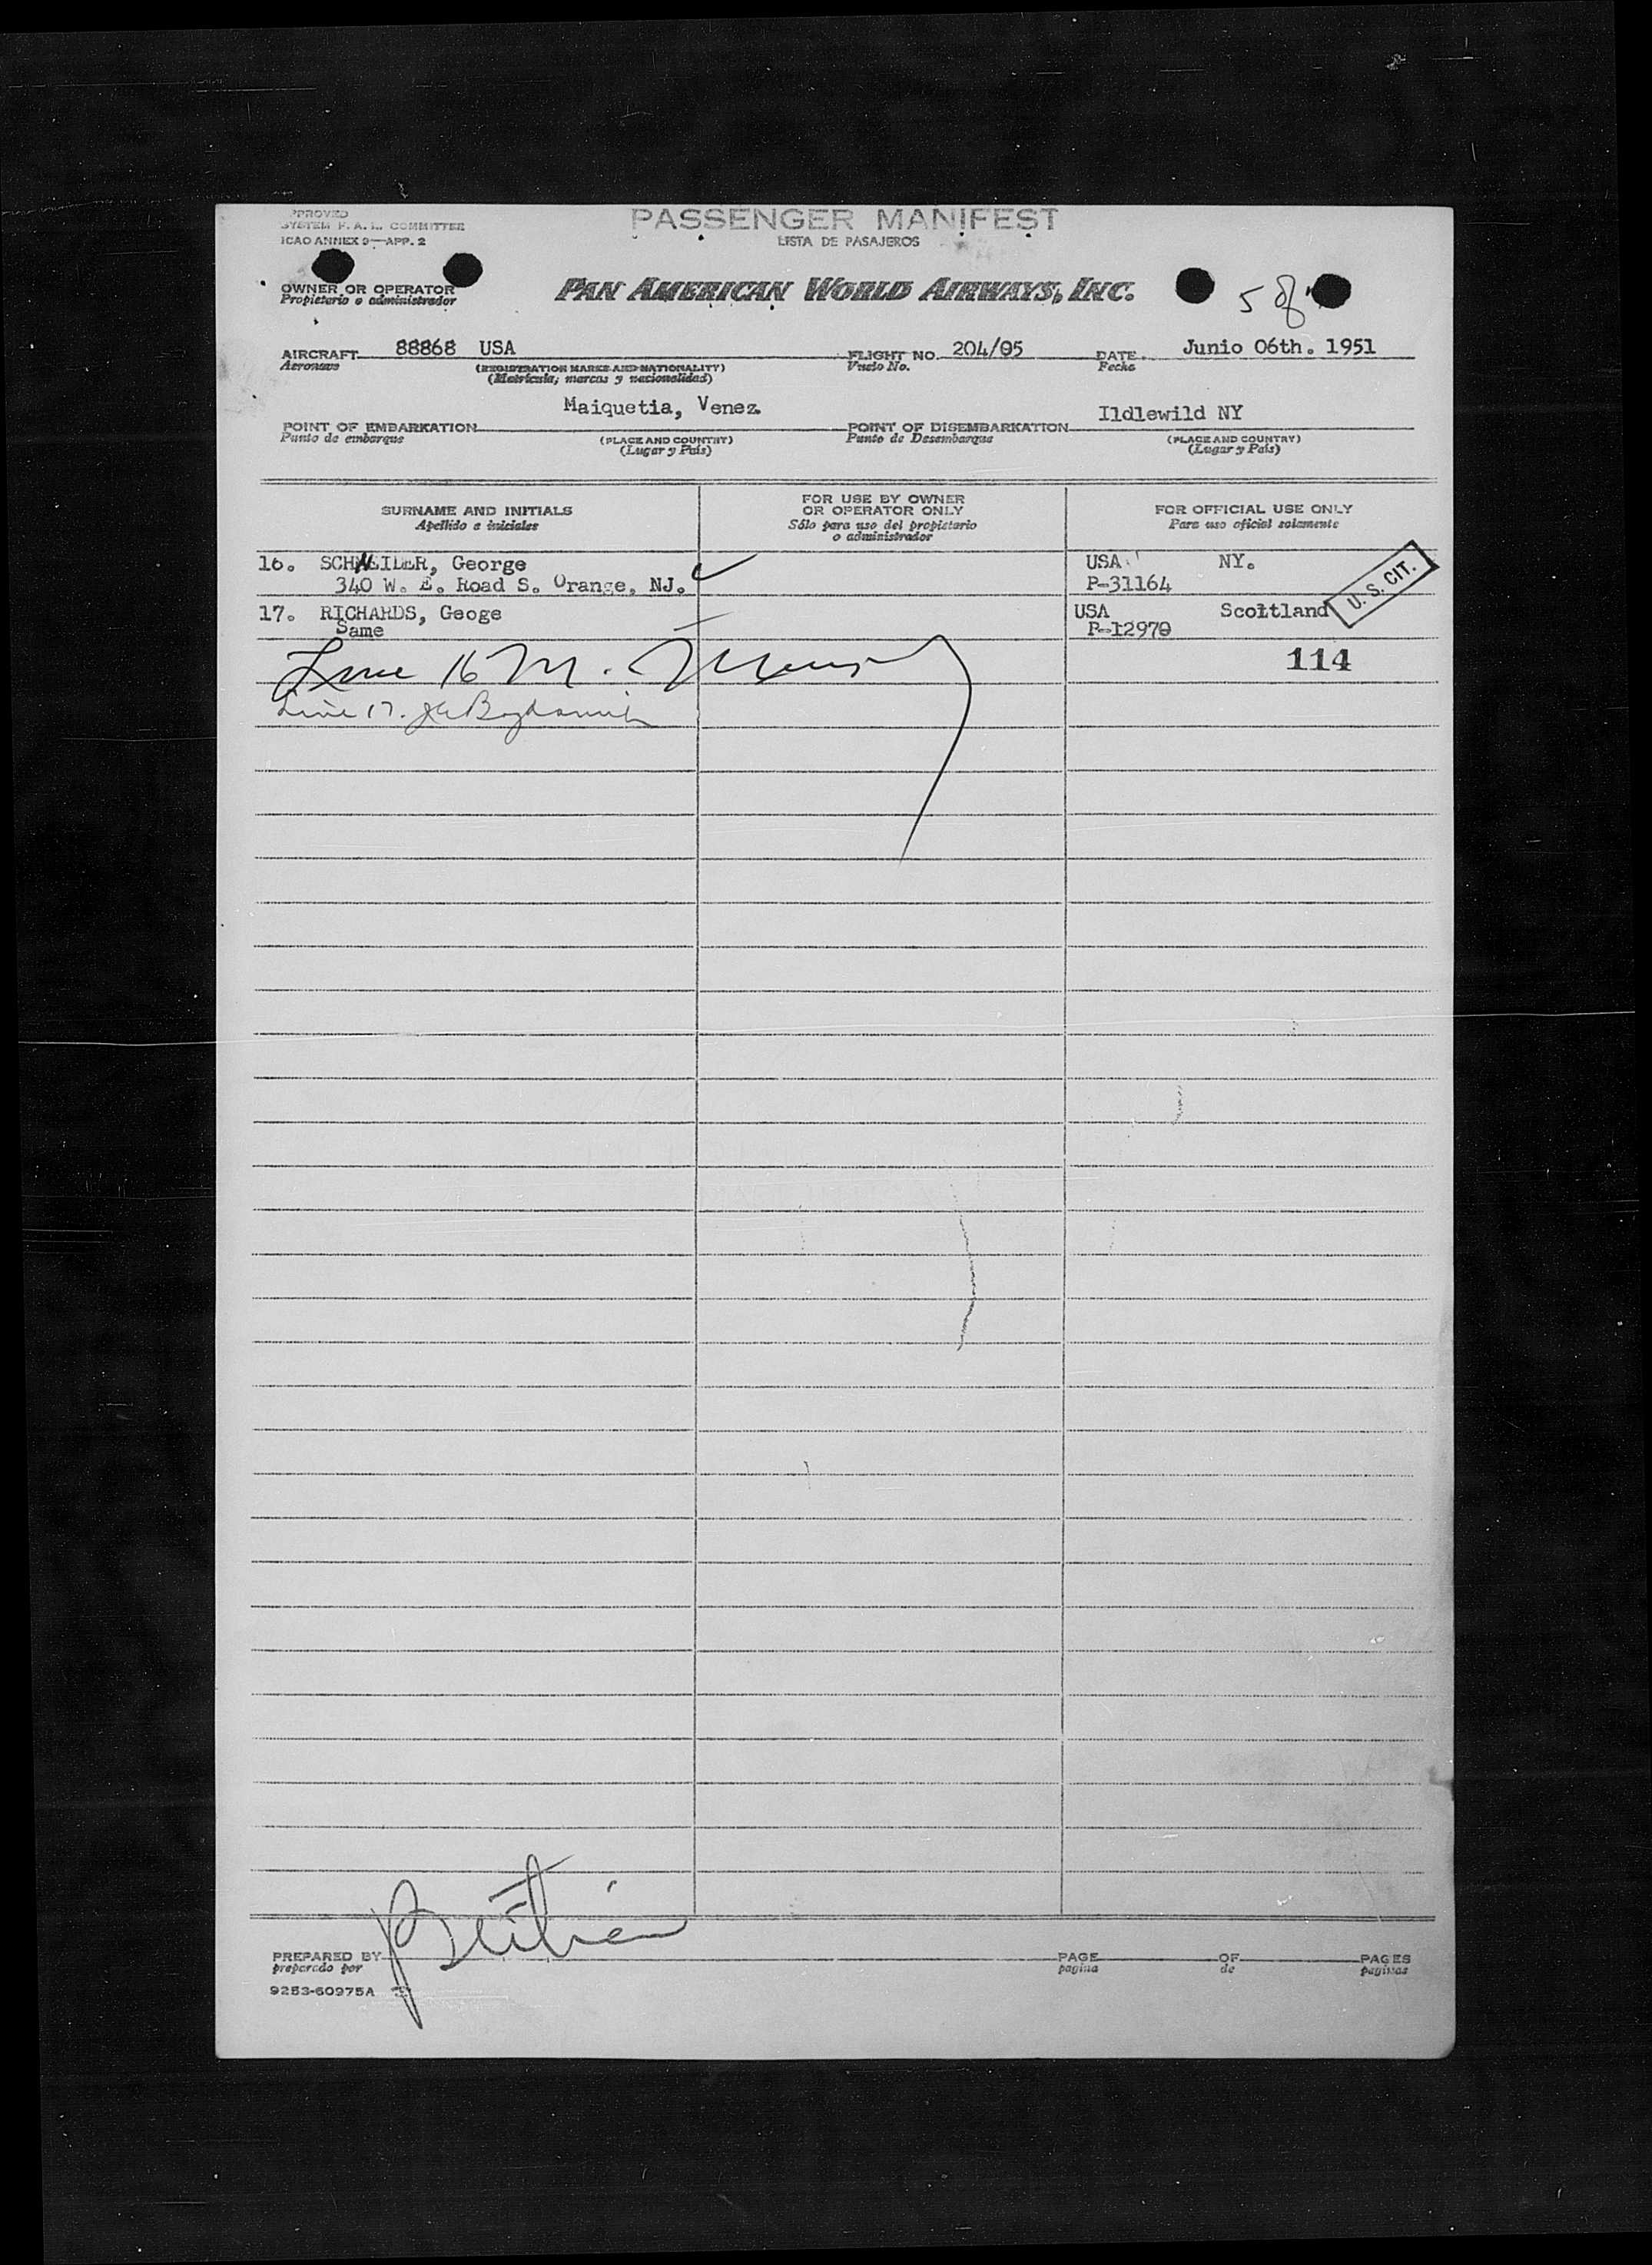 APPROVED
SYSTEM F. A. L. COMMITTEE
ICAO ANNEX 9—APP. 2
PASSENGER MANIFEST
LISTA DE PASAJEROS
OWNER OR OPERATOR
Propietario o administrador
PAN AMERICAN WORLD AIRWAYS, INC.
5 of
AIRCRAFT 88868 USA
Aeronave
(REGISTRATION MARKS AND NATIONALITY)
(Matricula; marcas y nacionalidad)
FLIGHT NO. 204/05
Vuelo No.
DATE Junio 06th. 1951
Fecha
Maiquetia, Venez.
POINT OF EMBARKATION
Punto de embarque
(PLACE AND COUNTRY)
(Lugar y País)
Ildlewild NY
POINT OF DISEMBARKATION
Punto de Desembarque
(PLACE AND COUNTRY)
(Lugar y País)
SURNAME AND INITIALS
Apellido e iniciales
FOR USE BY OWNER
OR OPERATOR ONLY
Sólo para uso del propietario
o administrador
FOR OFFICIAL USE ONLY
Para uso oficial solamente
16. SCHNEIDER, George USA NY.
340 W. E. Road S. Orange, NJ. P-31164
U. S. CIT.
17. RICHARDS, Geoge USA Scottland
Same P-12970
114
Line 16 M.
Line 17.
PREPARED BY
preparado por
PAGE OF PAGES
pagina de paginas
9253-60975A